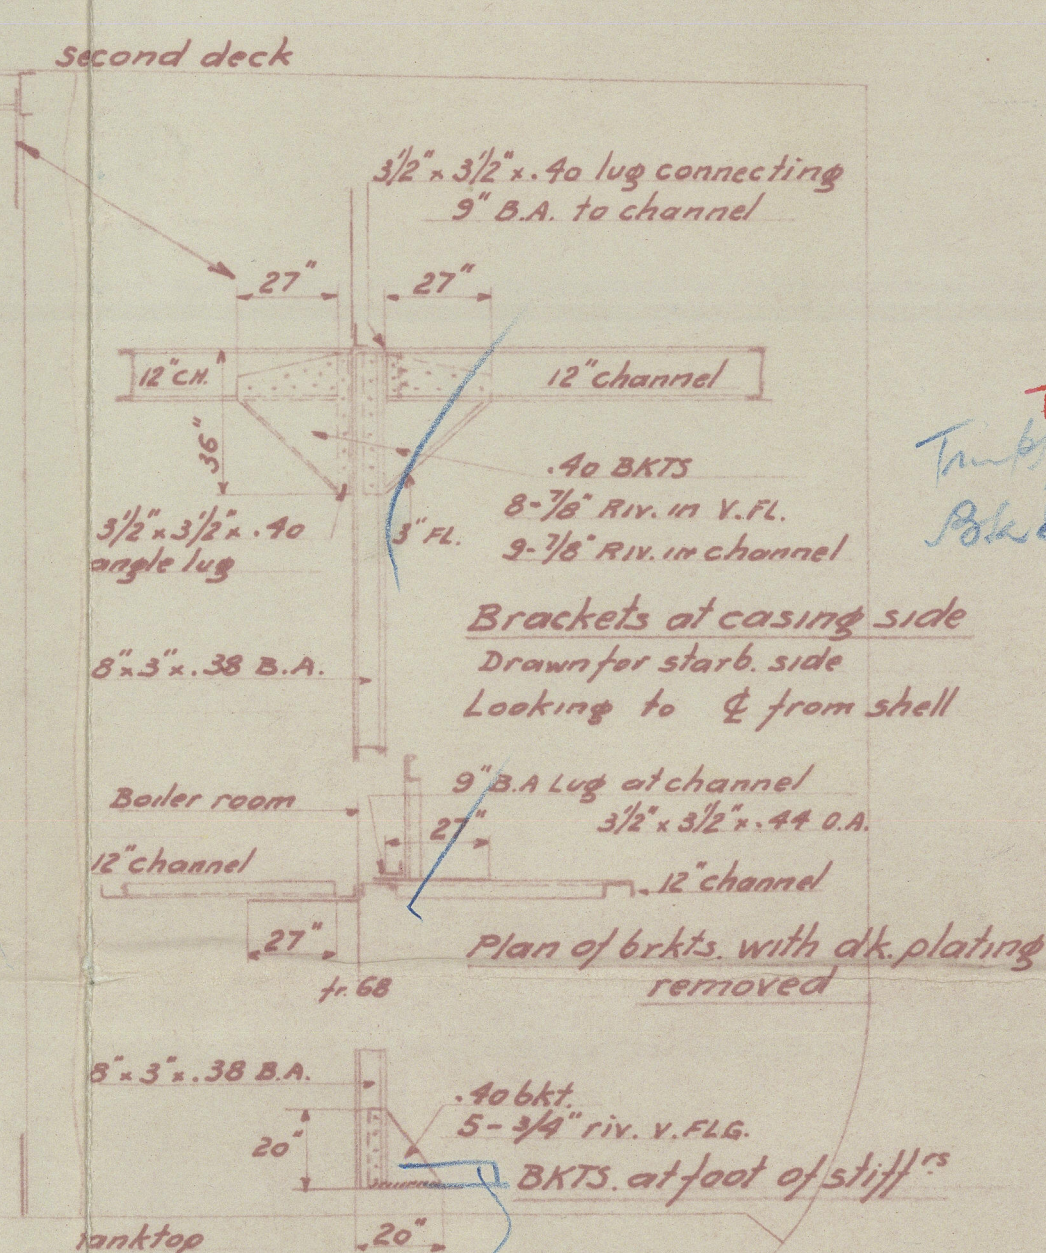 second deck
3 1/2" x 3 1/2" x .40 lug connecting
9" B.A. to channel
27"
27"
12" CH.
12" channel
36"
.40 BKTS
8-7/8" RIV. in V.FL.
9-7/8" RIV. in channel
3" FL.
3 1/2" x 3 1/2" x .40
angle lug
Brackets at casing side
Drawn for starb. side
Looking to ℄ from shell
8" x 3" x .38 B.A.
9" B.A Lug at channel
3 1/2" x 3 1/2" x .44 O.A.
Boiler room
27"
12" channel
12" channel
27"
Plan of brkts. with dk. plating
removed
fr. 68
8" x 3" x .38 B.A.
.40 bkt.
5-3/4" riv. V.FLG.
20"
BKTS. at foot of stiffrs
20"
tanktop